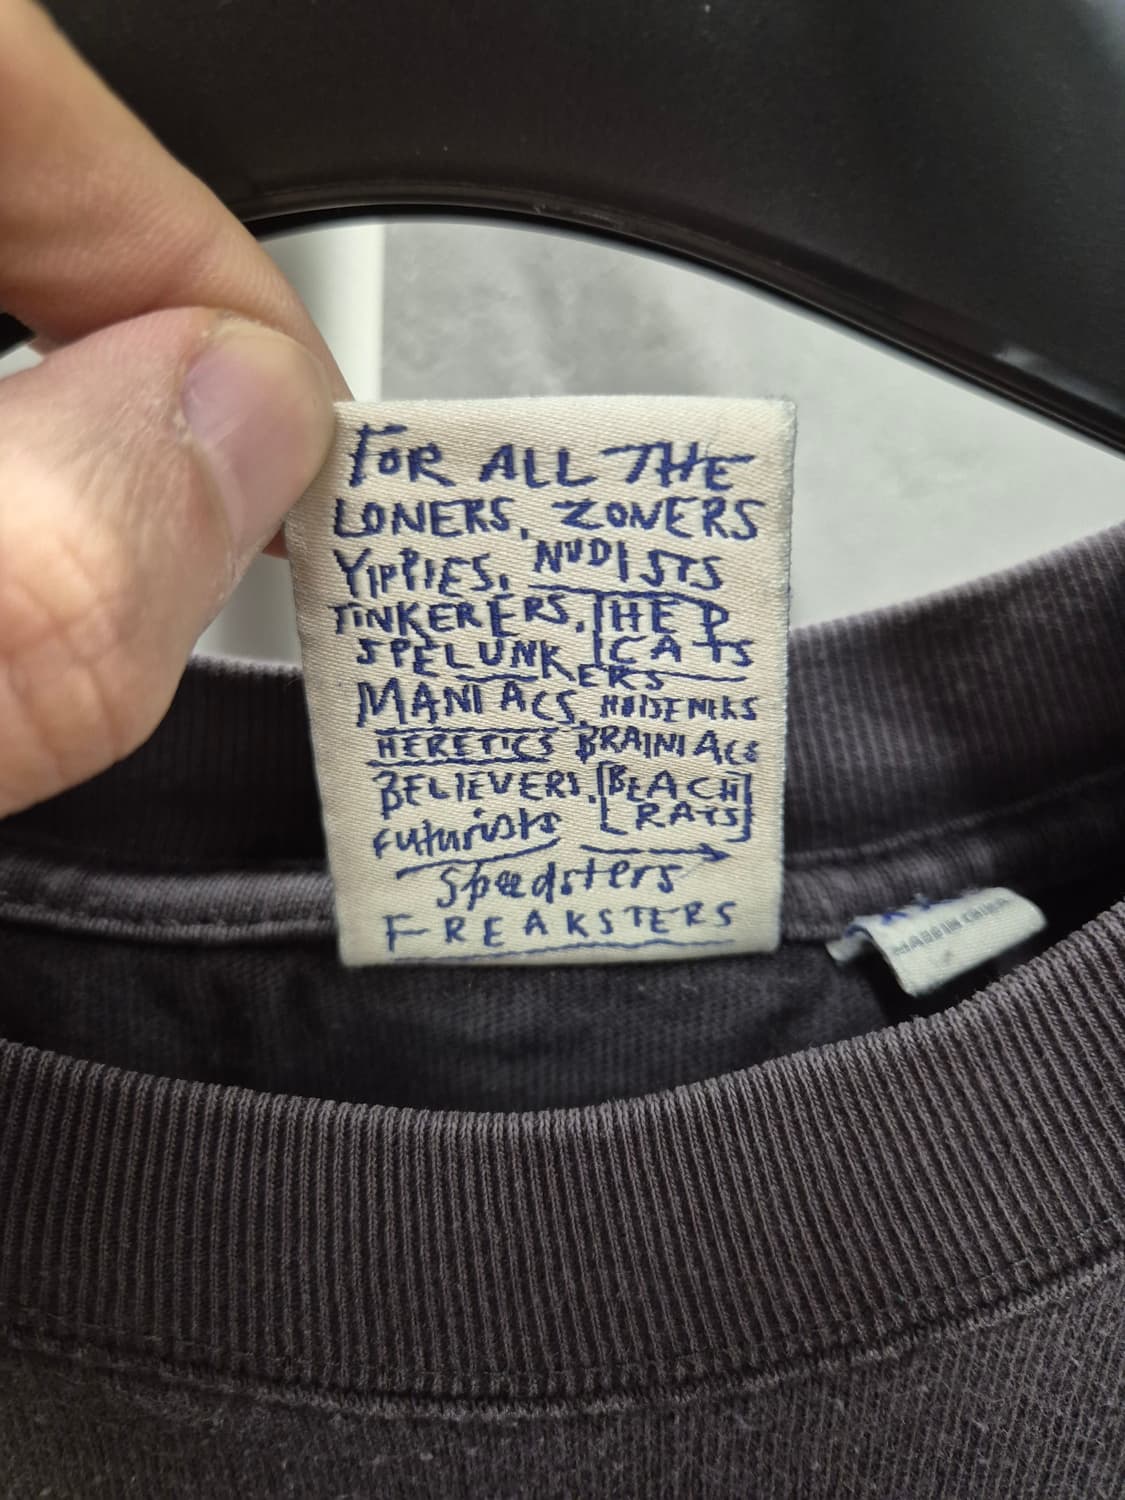 FOR ALL THE
LONERS, ZONERS
YIPPIES, NUDISTS
TINKERERS, THE P
SPELUNKERS CATS
MANIACS, NOISENIKS
HERETICS BRAINIACS
BELIEVERS, BEACH
FUTURISTS RATS
Speedsters
FREAKSTERS
MADE IN CHINA